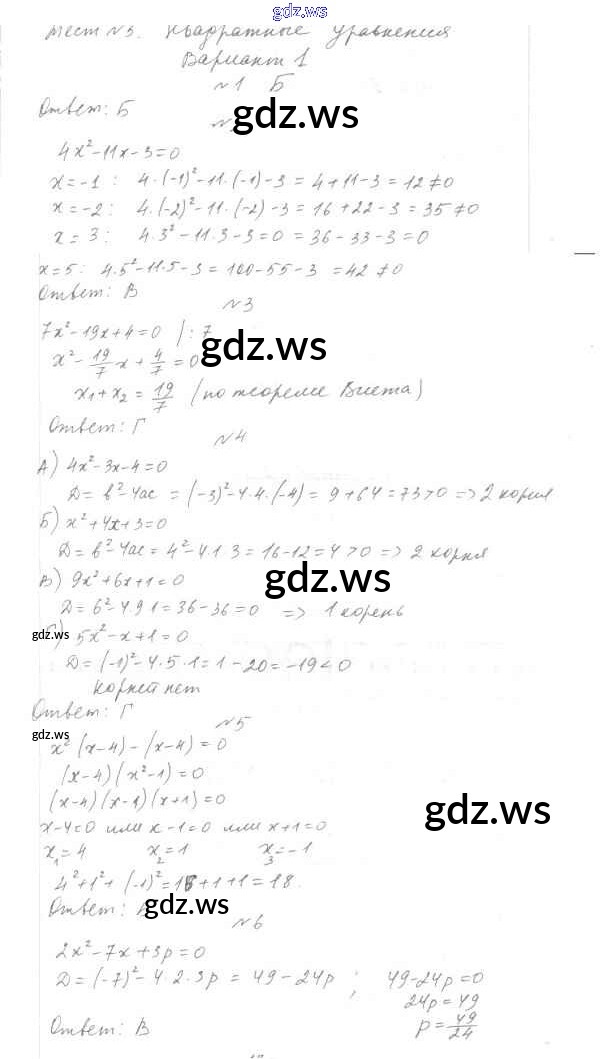 gdz.ws
Тест №3. Квадратные уравнения
Вариант 1
№1 Б
Ответ: Б
gdz.ws
4x²-11x-3=0
x=-1: 4·(-1)²-11·(-1)-3=4+11-3=12≠0
x=-2: 4·(-2)²-11·(-2)-3=16+22-3=35≠0
x=3: 4·3²-11·3-3=0=36-33-3=0
x=5: 4·5²-11·5-3=100-55-3=42≠0
Ответ: В
№3
7x²-19x+4=0 |:7
gdz.ws
x²-19/7x+4/7=0
x₁+x₂=19/7 (по теореме Виета)
Ответ: Г
№4
А) 4x²-3x-4=0
D=b²-4ac=(-3)²-4·4·(-4)=9+64=73>0=>2 корня
Б) x²+4x+3=0
D=b²-4ac=4²-4·1·3=16-12=4>0=>2 корня
gdz.ws
В) 9x²+6x+1=0
D=6²-4·9·1=36-36=0 => 1 корень
gdz.ws
Г) 5x²-x+1=0
D=(-1)²-4·5·1=1-20=-19<0
корней нет
Ответ: Г
№5
gdz.ws
x²(x-4)-(x-4)=0
(x-4)(x²-1)=0
(x-4)(x-1)(x+1)=0
gdz.ws
x-4=0 или x-1=0 или x+1=0
x₁=4 x₂=1 x₃=-1
4²+1²+(-1)²=16+1+1=18.
Ответ:
gdz.ws
№6
2x²-7x+3p=0
D=(-7)²-4·2·3p=49-24p; 49-24p=0
24p=49
Ответ: В p=49/24